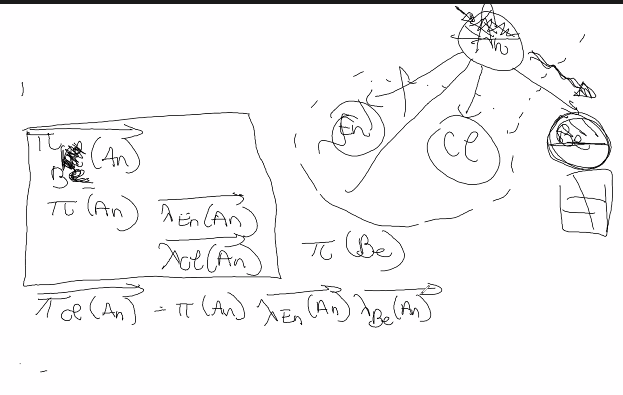 An
En
Cl
Be
π Be (An)
π (An) λEn (An)
λCl (An)
π (Be)
πCl (An) = π (An) λEn (An) λBe (An)